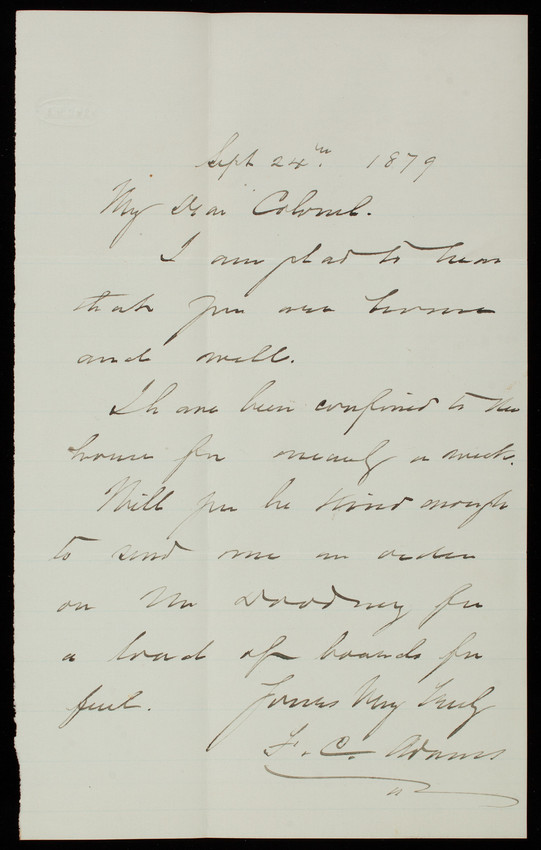 Sept 24th 1879
My Dear Colonel.
I am glad to hear
that you are home
and well.
I have been confined to the
house for nearly a week.
Will you be kind enough
to send me an order
on Mr for
a load of boards for
fuel. Yours Very Truly
F. C. Adams